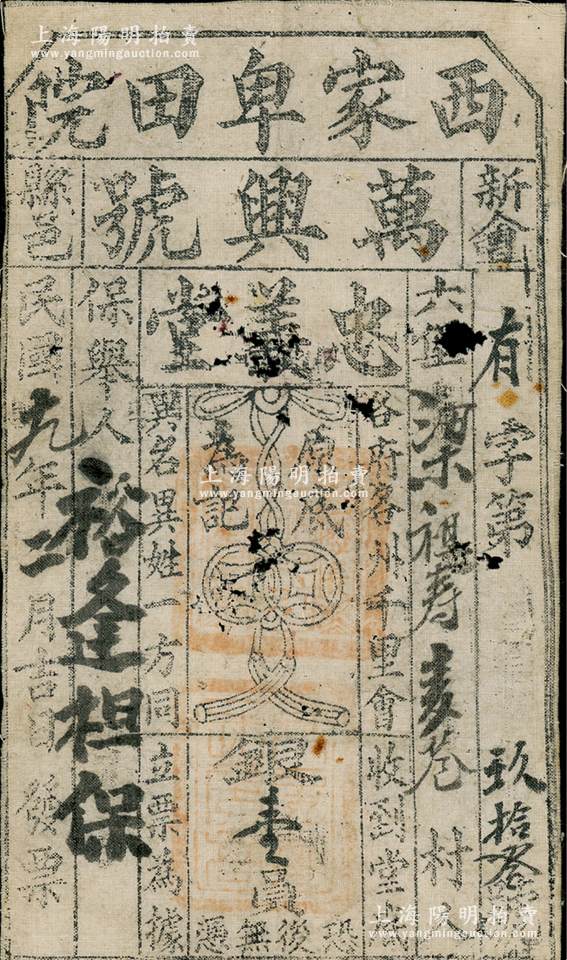 上海陽明拍賣
www.yangmingauction.com
西家卑田院
新會
萬興號
縣邑
有字第 玖拾叁
六
梁祺寿
巷村
忠義堂
各府各州千里會收到堂
為記
銀壹員
恐後無憑
異名異姓一方同立票為據
保舉人 裕隆担保
民國九年二月吉日發票
上海陽明拍賣
www.yangmingauction.com
上海陽明拍賣
www.yangmingauction.com